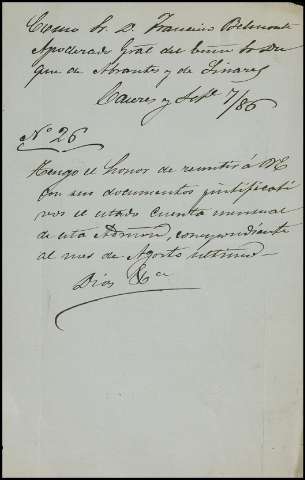 Excmo Sr. D. Francisco Belmonte
Apoderado Gral del Excmo Sr Du
que de Abrantes y de Linares
Caceres y Sepe 7/86
Nº 26
Tengo el honor de remitir á VE
con sus documentos justificati
vos el estado cuenta mensual
de esta Admon, correspondiente
al mes de Agosto ultimo—
Dios &ca